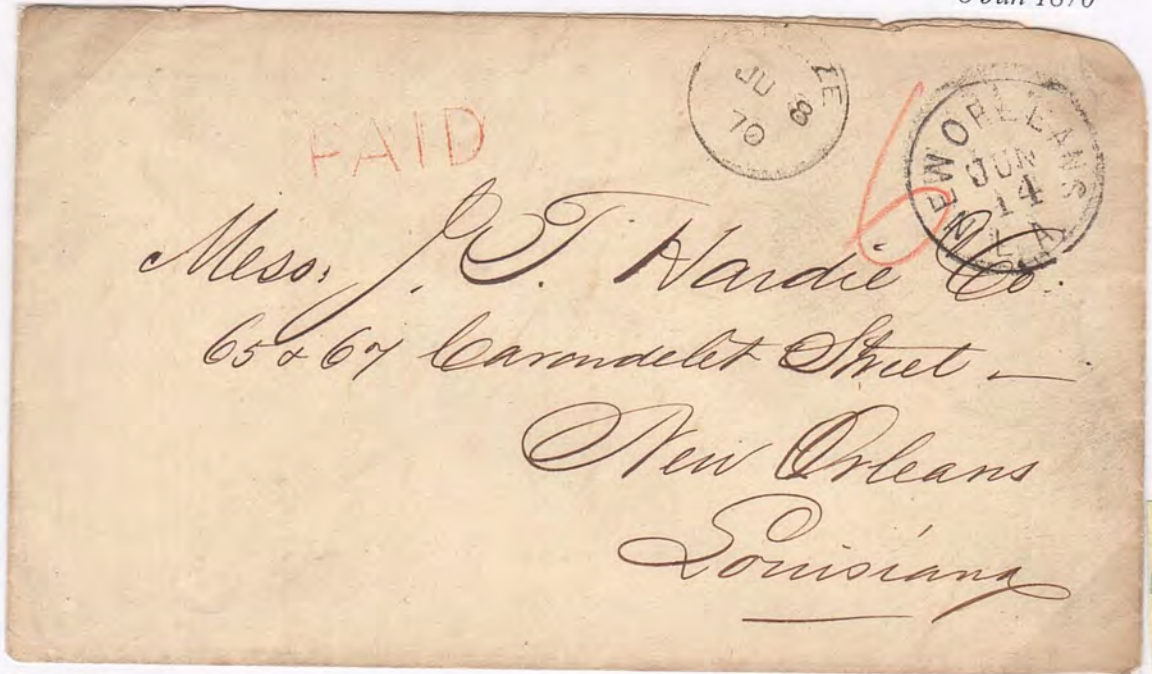 Jun 1870
PAID
ZE
JU 8
70
6
NEW ORLEANS
JUN
14
LA
Mess. J. T. Hardie Co.
65 & 67 Carondelet Street —
New Orleans
Louisiana